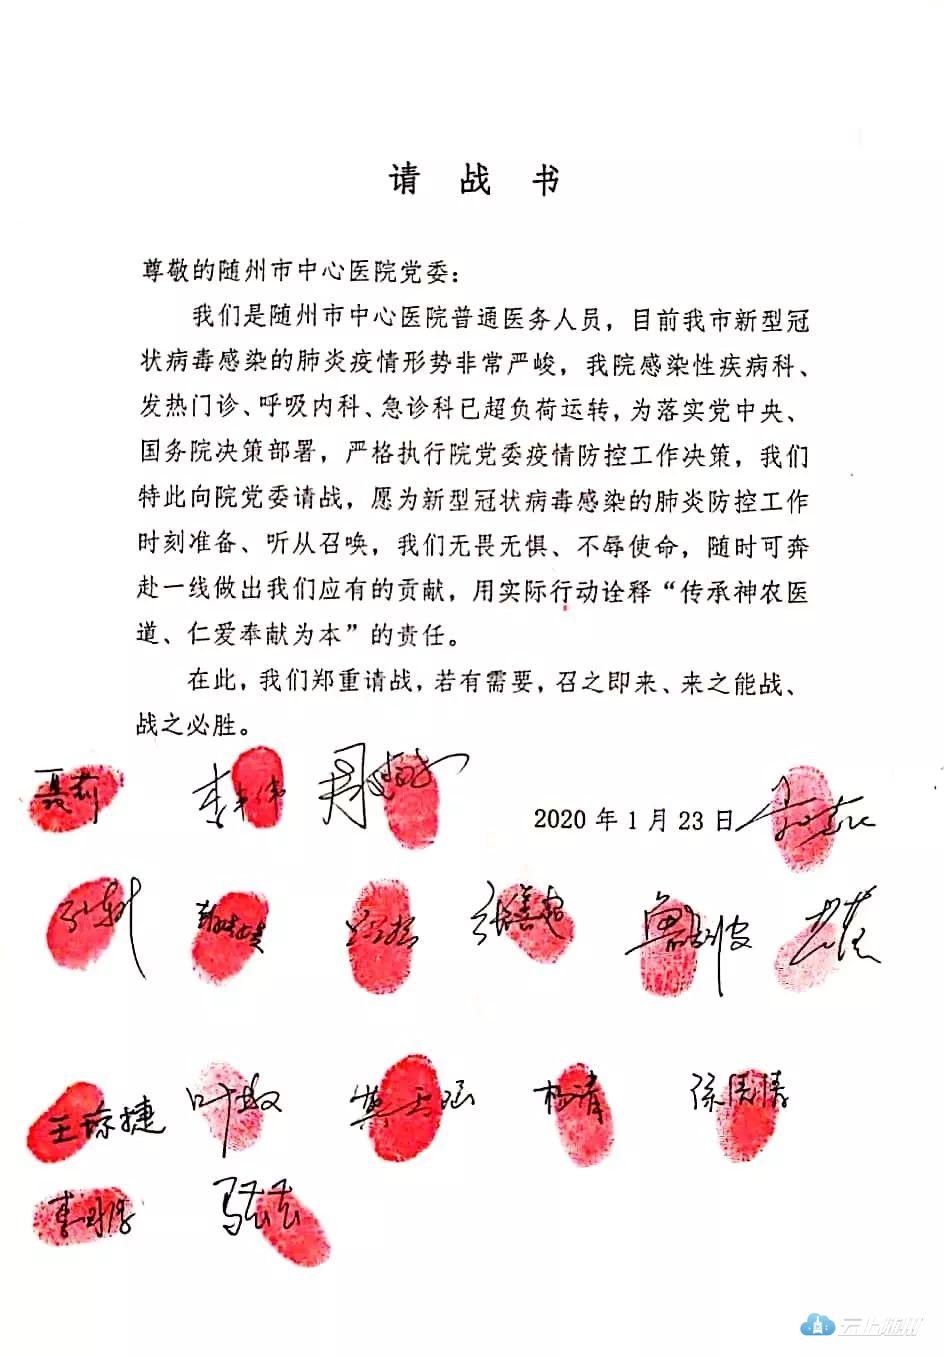 请战书
尊敬的随州市中心医院党委：
我们是随州市中心医院普通医务人员，目前我市新型冠
状病毒感染的肺炎疫情形势非常严峻，我院感染性疾病科、
发热门诊、呼吸内科、急诊科已超负荷运转，为落实党中央、
国务院决策部署，严格执行院党委疫情防控工作决策，我们
特此向院党委请战，愿为新型冠状病毒感染的肺炎防控工作
时刻准备、听从召唤，我们无畏无惧、不辱使命，随时可奔
赴一线做出我们应有的贡献，用实际行动诠释“传承神农医
道、仁爱奉献为本”的责任。
在此，我们郑重请战，若有需要，召之即来、来之能战、
战之必胜。
聂莉
2020年1月23日
张善超
王琼捷 叶敏 杨清
云上随州